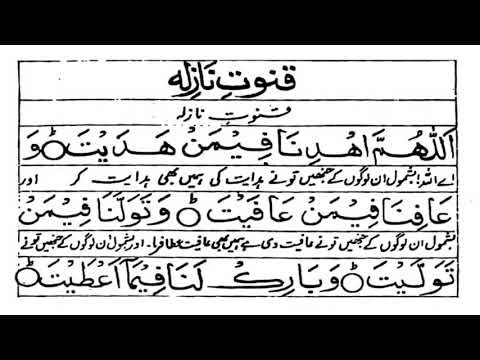 قنوتِ نازلہ
قنوتِ نازلہ
اَللّٰهُمَّ اهْدِنَا فِيْمَنْ هَدَيْتَ ۞ وَ
اے اللہ! بشمول ان لوگوں کے جنھیں تو نے ہدایت کی ہمیں بھی ہدایت کر اور
عَافِنَا فِيْمَنْ عَافَيْتَ ۞ وَتَوَلَّنَا فِيْمَنْ
بشمول ان لوگوں کے جنھیں تو نے عافیت دی ہے ہمیں بھی عافیت عطا فرما۔ اور بشمول ان لوگوں کے جنھیں تونے
تَوَلَّيْتَ ۞ وَبَارِكْ لَنَا فِيْمَا اَعْطَيْتَ ۞